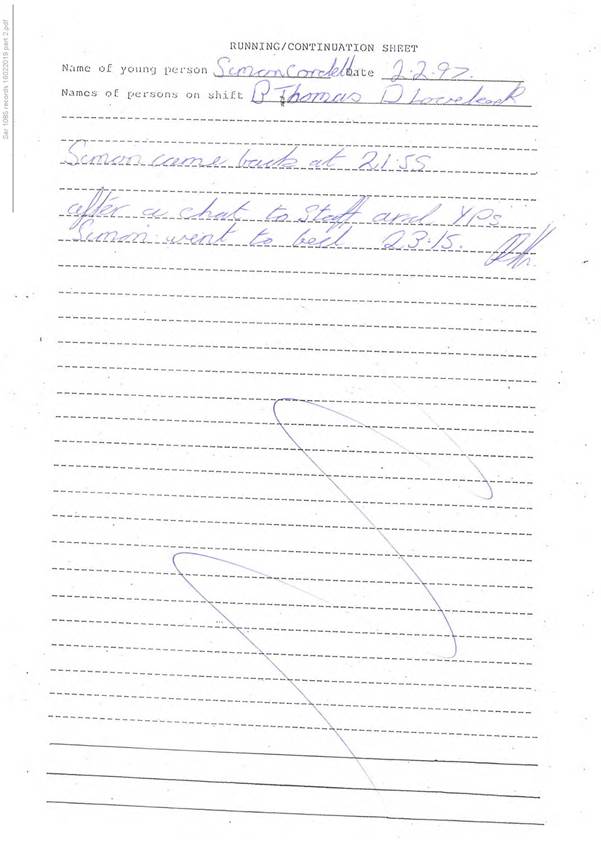 Sar 1085 records 16022019 part 2.pdf
RUNNING/CONTINUATION SHEET
Name of young person Simon Cordell Date 2.2.97.
Names of persons on shift B Thomas D
Simon came back at 21:55
after a chat to staff and YPs
Simon went to bed 23.15.